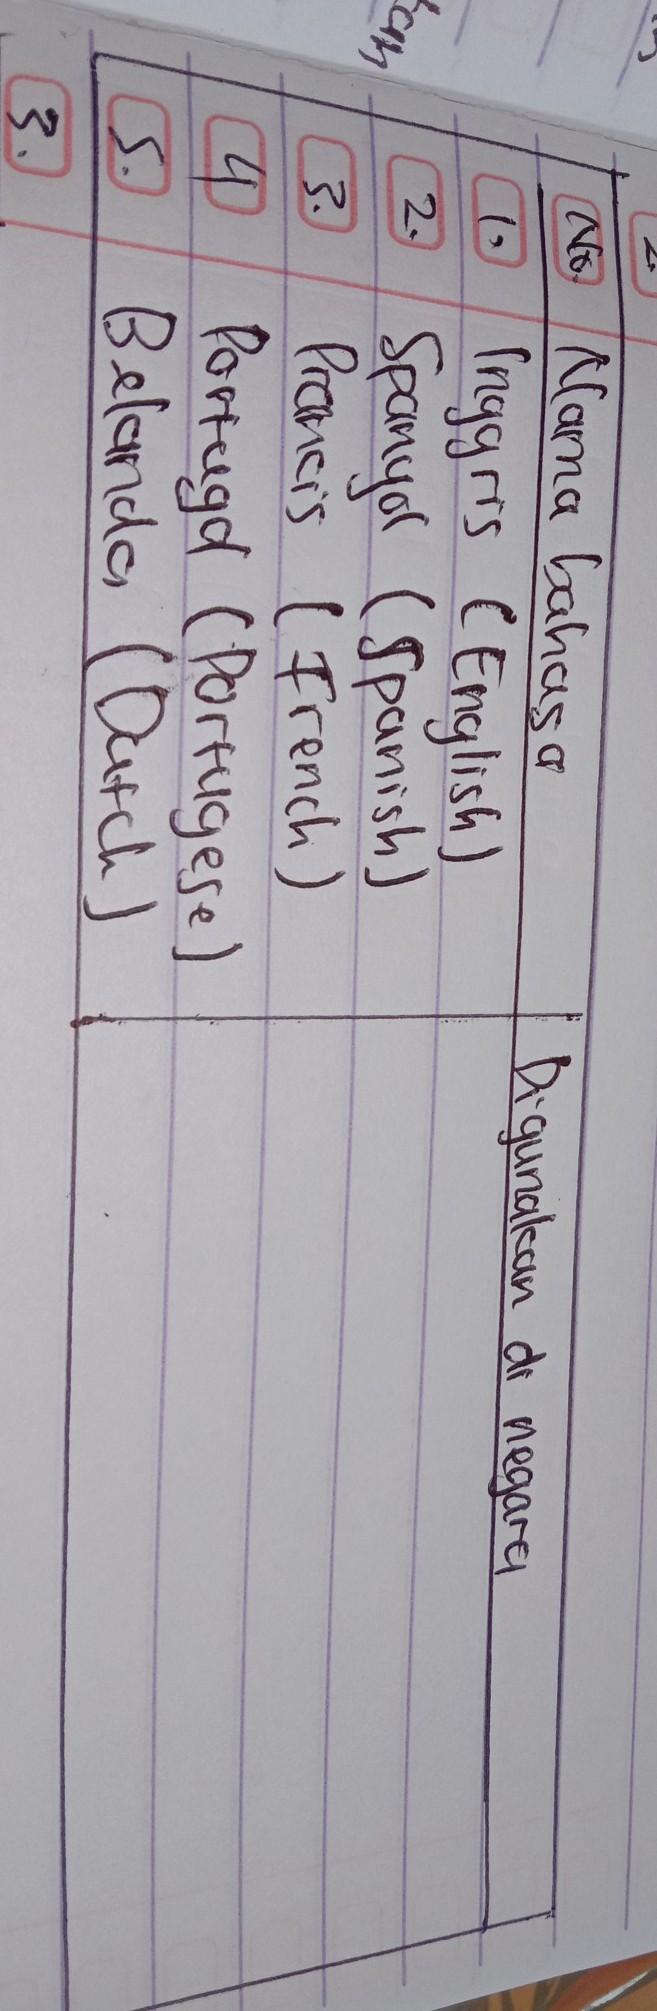 2.
No. Nama bahasa Digunakan di negara
1. Inggris (English)
2. Spanyol (Spanish)
3. Prancis (French)
4 Portugal (Portugese)
5. Belanda (Dutch)
3.